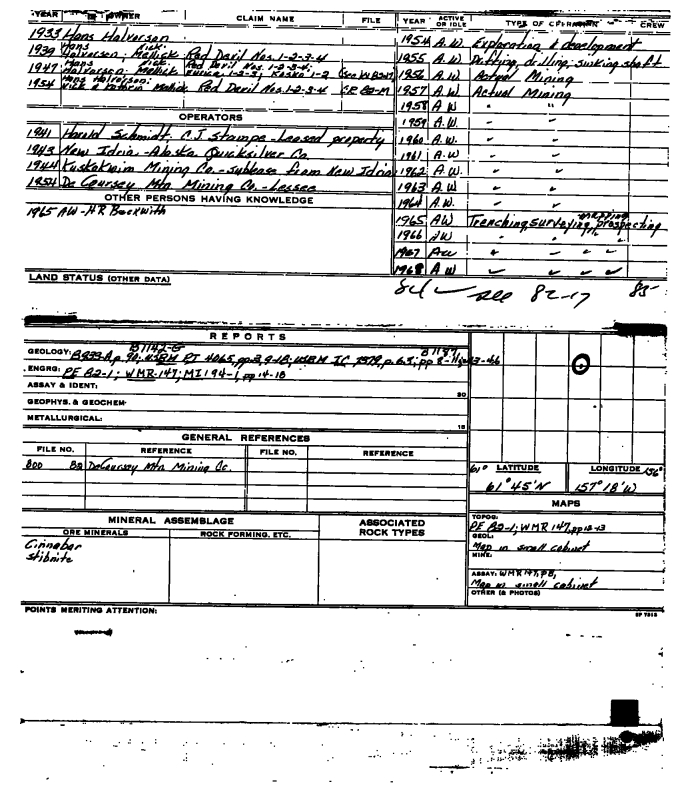 YEAR OWNER CLAIM NAME FILE YEAR ACTIVE OR IDLE TYPE OF OPERATION CREW
1933 Hans Halverson
1939 Hans Halverson; Nick Mellick Red Devil Nos. 1-2-3-4
1947 Hans Halverson; Nick Mellick Red Devil Nos. 1-2-3-4; 1-2-3; Kusko 1-2
1954 Hans Halverson; Nick & Kathrin Mellick Red Devil Nos. 1-2-3-4 CF 82-M
1954 A.W. Exploration & development
1955 A.W. Drifting, drilling, sinking shaft
1956 A.W. Actual Mining
1957 A.W. Actual Mining
1958 A.W. " "
1959 A.W. " "
1960 A.W. " "
1961 A.W. " "
1962 A.W. " "
1963 A.W. " "
1964 A.W. " "
1965 AW Trenching, surveying, mapping prospecting
1966 AW " " "
1967 AW " " " "
1968 AW " " " "
84 see 82-17 85-
OPERATORS
1941 Harold Schmidt. C.J. Stampe - Leased property
1943 New Idria - Alaska Quicksilver Co.
1944 Kuskokwim Mining Co. - sublease from New Idria
1954 De Coursey Mtn Mining Co. - Lessee
OTHER PERSONS HAVING KNOWLEDGE
1965 AW - HR Beckwith
LAND STATUS (OTHER DATA)
REPORTS
B1142-G B1187
GEOLOGY: B933-A p. 90; USBM RI 4065, pp 3, 9-18; USBM IC 7379, p. 63; pp 8-11, 43-46
ENGRG: PE 82-1; WMR-147; MI 194-1, pp 14-18
ASSAY & IDENT:
30
GEOPHYS. & GEOCHEM
METALLURGICAL:
15
GENERAL REFERENCES
FILE NO. REFERENCE FILE NO. REFERENCE
800 82 DeCoursey Mtn Mining Co.
61° LATITUDE LONGITUDE 156°
61°45'N 157°18'W
MAPS
TOPOG:
PE 82-1; WMR 147, pp 12-13
GEOL:
Map in small cabinet
MINE:
ASSAY: WMR 147, P8,
Map in small cabinet
OTHER (& PHOTOS)
MINERAL ASSEMBLAGE ASSOCIATED ROCK TYPES
ORE MINERALS ROCK FORMING, ETC.
Cinnabar
Stibnite
POINTS MERITING ATTENTION: